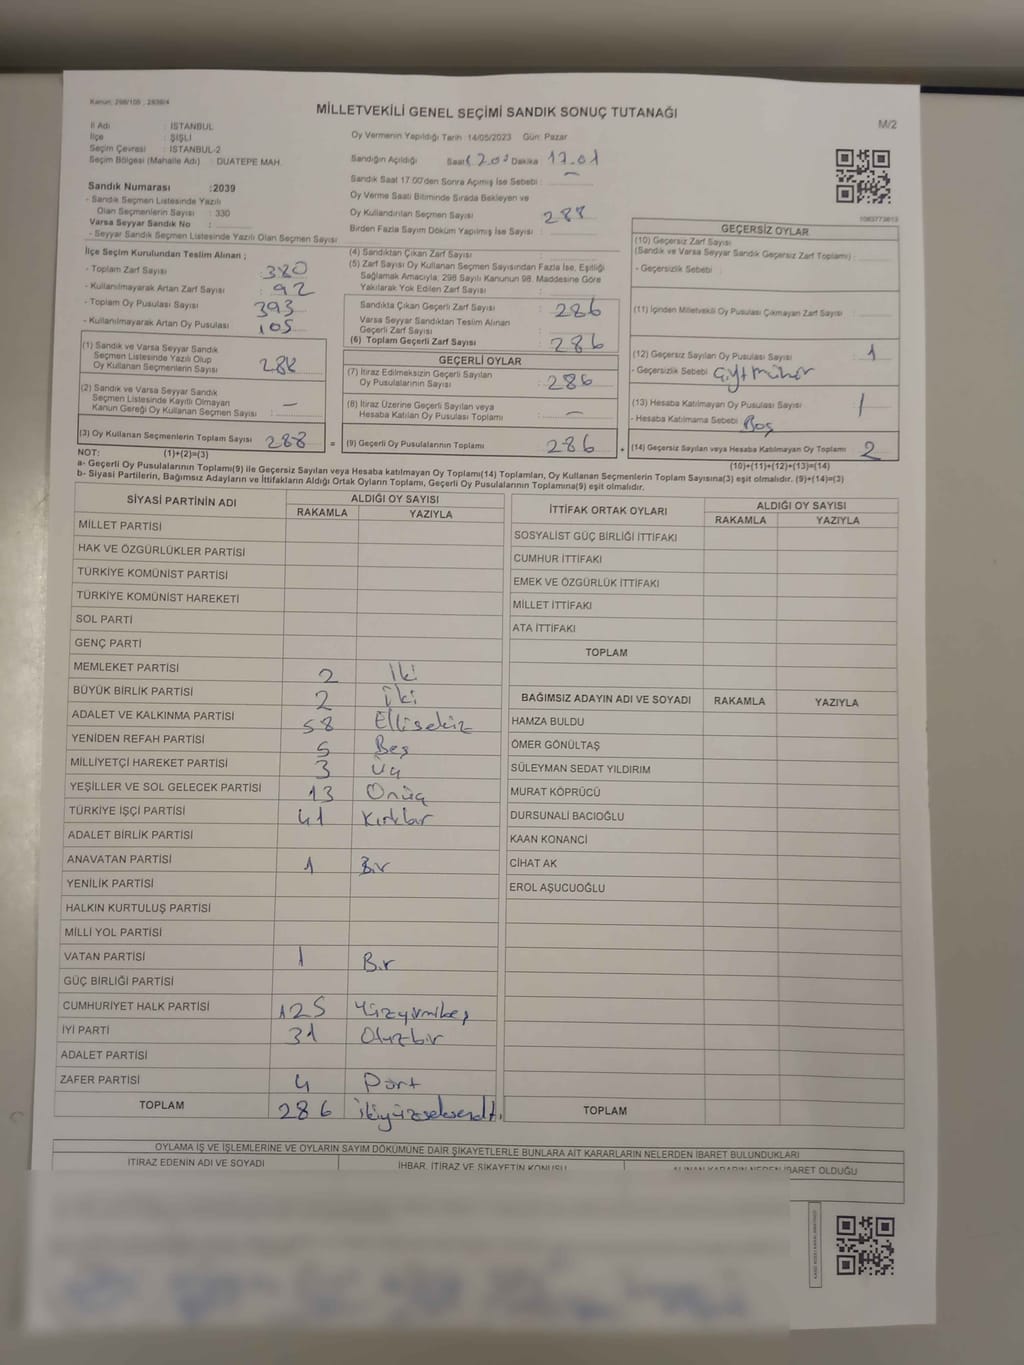 Kanun: 298/105 , 2839/4
MİLLETVEKİLİ GENEL SEÇİMİ SANDIK SONUÇ TUTANAĞI
M/2
İl Adı : İSTANBUL
İlçe : ŞİŞLİ
Seçim Çevresi : İSTANBUL-2
Seçim Bölgesi (Mahalle Adı) : DUATEPE MAH.
Sandık Numarası : 2039
- Sandık Seçmen Listesinde Yazılı
Olan Seçmenlerin Sayısı : 330
Varsa Seyyar Sandık No :
- Seyyar Sandık Seçmen Listesinde Yazılı Olan Seçmen Sayısı
Oy Vermenin Yapıldığı Tarih: 14/05/2023 Gün: Pazar
Sandığın Açıldığı Saat Dakika 17.01
Sandık Saat 17:00'den Sonra Açımış İse Sebebi : -
Oy Verme Saati Bitiminde Sırada Bekleyen ve
Oy Kullandırılan Seçmen Sayısı 288
Birden Fazla Sayım Döküm Yapılmış İse Sayısı :
İlçe Seçim Kurulundan Teslim Alınan ;
- Toplam Zarf Sayısı : 380
- Kullanılmayarak Artan Zarf Sayısı : 92
- Toplam Oy Pusulası Sayısı : 393
- Kullanılmayarak Artan Oy Pusulası : 105
(1) Sandık ve Varsa Seyyar Sandık
Seçmen Listesinde Yazılı Olup
Oy Kullanan Seçmenlerin Sayısı : 288
(2) Sandık ve Varsa Seyyar Sandık
Seçmen Listesinde Kayıtlı Olmayan
Kanun Gereği Oy Kullanan Seçmen Sayısı : -
(3) Oy Kullanan Seçmenlerin Toplam Sayısı 288 =
(4) Sandıktan Çıkan Zarf Sayısı :
(5) Zarf Sayısı Oy Kullanan Seçmen Sayısından Fazla İse, Eşitliği
Sağlamak Amacıyla, 298 Sayılı Kanunun 98. Maddesine Göre
Yakılarak Yok Edilen Zarf Sayısı :
Sandıkta Çıkan Geçerli Zarf Sayısı : 286
Varsa Seyyar Sandıktan Teslim Alınan
Geçerli Zarf Sayısı :
(6) Toplam Geçerli Zarf Sayısı : 286
GEÇERLİ OYLAR
(7) İtiraz Edilmeksizin Geçerli Sayılan
Oy Pusulalarının Sayısı : 286
(8) İtiraz Üzerine Geçerli Sayılan veya
Hesaba Katılan Oy Pusulası Toplamı : -
(9) Geçerli Oy Pusulalarının Toplamı 286 +
1083773813
GEÇERSİZ OYLAR
(10) Geçersiz Zarf Sayısı
(Sandık ve Varsa Seyyar Sandık Geçersiz Zarf Toplamı) :
- Geçersizlik Sebebi :
(11) İçinden Milletvekili Oy Pusulası Çıkmayan Zarf Sayısı :
(12) Geçersiz Sayılan Oy Pusulası Sayısı : 1
- Geçersizlik Sebebi : Çift mühür
(13) Hesaba Katılmayan Oy Pusulası Sayısı : 1
- Hesaba Katılmama Sebebi : Boş
(14) Geçersiz Sayılan veya Hesaba Katılmayan Oy Toplamı 2
NOT: (1)+(2)=(3) (10)+(11)+(12)+(13)=(14)
a- Geçerli Oy Pusulalarının Toplamı(9) ile Geçersiz Sayılan veya Hesaba katılmayan Oy Toplamı(14) Toplamları, Oy Kullanan Seçmenlerin Toplam Sayısına(3) eşit olmalıdır. (9)+(14)=(3)
b- Siyasi Partilerin, Bağımsız Adayların ve İttifakların Aldığı Ortak Oyların Toplamı, Geçerli Oy Pusulalarının Toplamına(9) eşit olmalıdır.
SİYASİ PARTİNİN ADI ALDIĞI OY SAYISI
RAKAMLA YAZIYLA
MİLLET PARTİSİ
HAK VE ÖZGÜRLÜKLER PARTİSİ
TÜRKİYE KOMÜNİST PARTİSİ
TÜRKİYE KOMÜNİST HAREKETİ
SOL PARTİ
GENÇ PARTİ
MEMLEKET PARTİSİ 2 İki
BÜYÜK BİRLİK PARTİSİ 2 İki
ADALET VE KALKINMA PARTİSİ 58 Ellisekiz
YENİDEN REFAH PARTİSİ 5 Beş
MİLLİYETÇİ HAREKET PARTİSİ 3 Üç
YEŞİLLER VE SOL GELECEK PARTİSİ 13 Onüç
TÜRKİYE İŞÇİ PARTİSİ 41 Kırkbir
ADALET BİRLİK PARTİSİ
ANAVATAN PARTİSİ 1 Bir
YENİLİK PARTİSİ
HALKIN KURTULUŞ PARTİSİ
MİLLİ YOL PARTİSİ
VATAN PARTİSİ 1 Bir
GÜÇ BİRLİĞİ PARTİSİ
CUMHURİYET HALK PARTİSİ 125 Yüzyirmibeş
İYİ PARTİ 31 Otuzbir
ADALET PARTİSİ
ZAFER PARTİSİ 4 Dört
TOPLAM 286 İkiyüzseksenaltı
İTTİFAK ORTAK OYLARI ALDIĞI OY SAYISI
RAKAMLA YAZIYLA
SOSYALİST GÜÇ BİRLİĞİ İTTİFAKI
CUMHUR İTTİFAKI
EMEK VE ÖZGÜRLÜK İTTİFAKI
MİLLET İTTİFAKI
ATA İTTİFAKI
TOPLAM
BAĞIMSIZ ADAYIN ADI VE SOYADI RAKAMLA YAZIYLA
HAMZA BULDU
ÖMER GÖNÜLTAŞ
SÜLEYMAN SEDAT YILDIRIM
MURAT KÖPRÜCÜ
DURSUNALİ BACIOĞLU
KAAN KONANCİ
CİHAT AK
EROL AŞUCUOĞLU
TOPLAM
OYLAMA İŞ VE İŞLEMLERİNE VE OYLARIN SAYIM DÖKÜMÜNE DAİR ŞİKAYETLERLE BUNLARA AİT KARARLARIN NELERDEN İBARET BULUNDUKLARI
İTİRAZ EDENİN ADI VE SOYADI İHBAR, İTİRAZ VE ŞİKAYETİN KONUSU ALINAN KARARIN NEDEN İBARET OLDUĞU